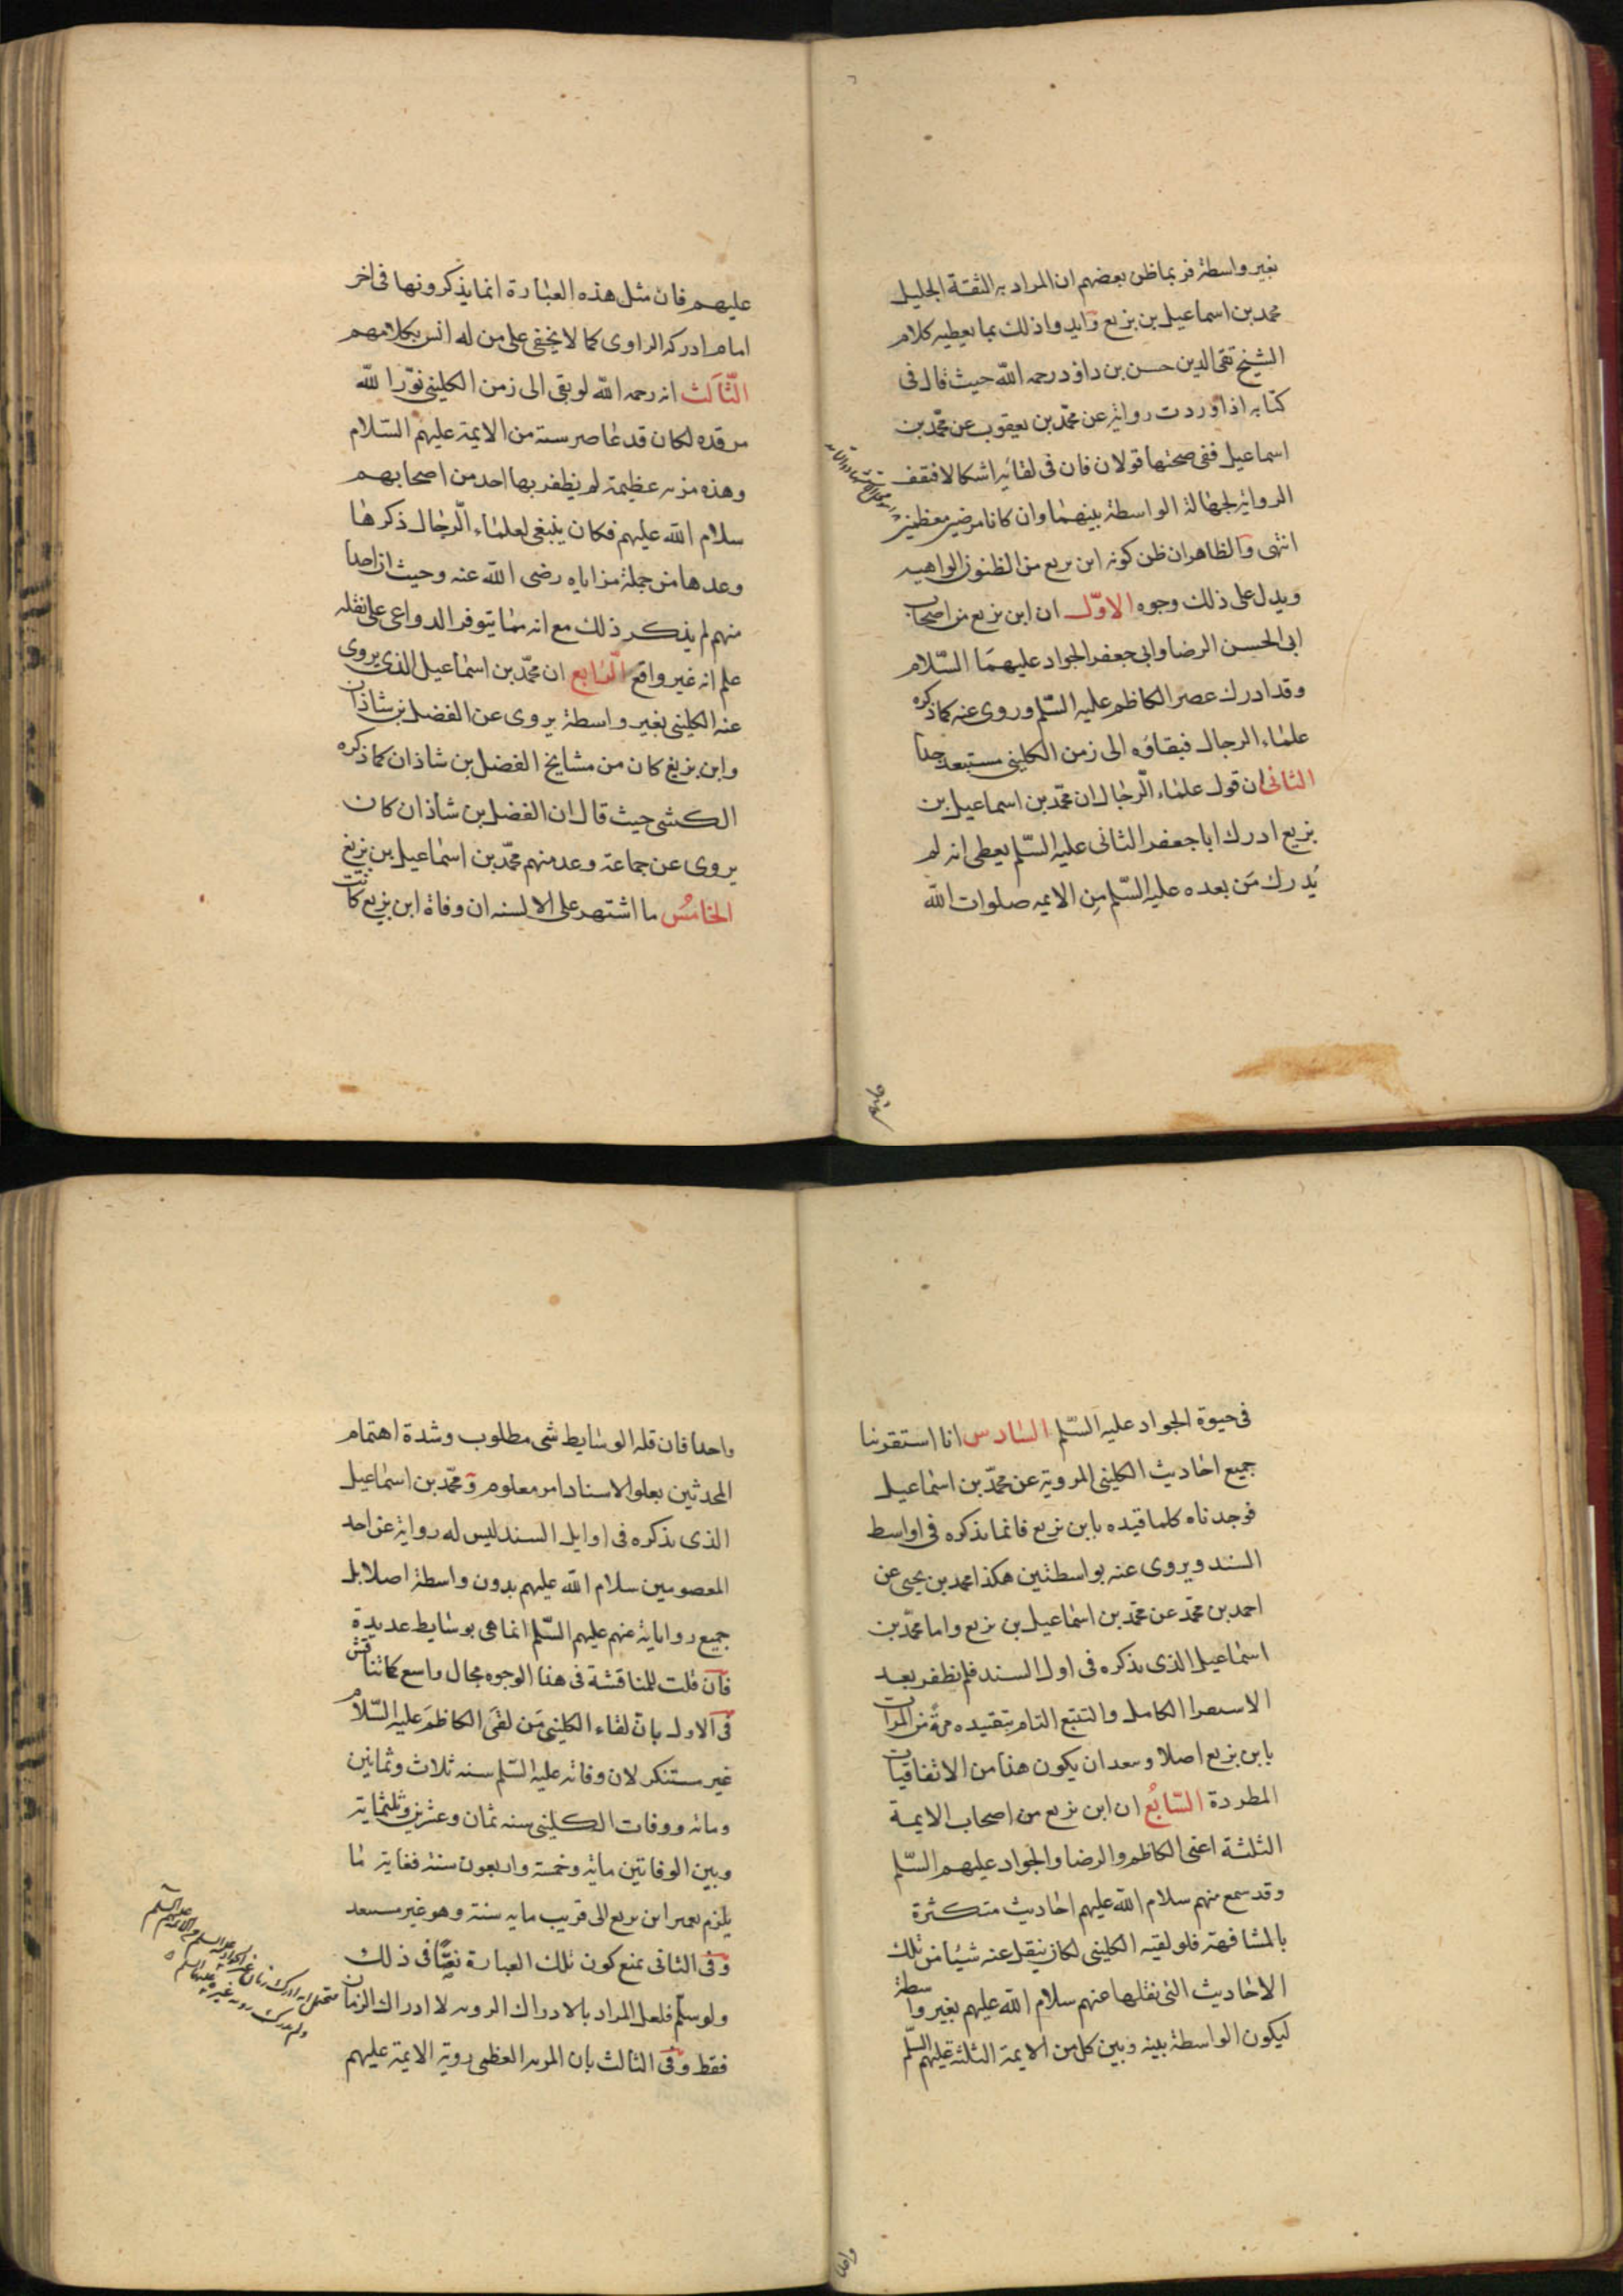 بغير واسطة فربما ظن بعضهم ان المراد به الثقة الجليل
محمد بن اسماعيل بن بزيع وايدوا ذلك بما يعطيه كلام
الشيخ تقي الدين حسن بن داؤد رحمه الله حيث قال في
كتابه اذا وردت رواية عن محمد بن يعقوب عن محمد بن
اسماعيل ففي صحتها قولان فان في لقائه اشكالا فتقف
الرواية لجهالة الواسطة بينهما وان كانا مرضيين معظمين
انتهى والظاهر ان ظن كونه ابن بزيع من الظنون الواهيه
ويدل على ذلك وجوه الاوّل ان ابن بزيع من اصحاب
ابي الحسن الرضا وابي جعفر الجواد عليهما السّلام
وقد ادرك عصر الكاظم عليه السّلم وروى عنه كما ذكره
علماء الرجال فبقاؤه الى زمن الكليني مستبعد جدا
الثاني ان قول علماء الرّجال ان محمّد بن اسماعيل بن
بزيع ادرك ابا جعفر الثاني عليه السّلم يعطي انه لم
يُدرك مَن بعده عليه السّلم مِن الايمه صلوات الله
عليهم
عليهم فان مثل هذه العبارة انما يذكرونها في اخر
امام ادركه الراوي كما لا يخفى على من له انس بكلامهم
الثّالث انه رحمه الله لو بقي الى زمن الكليني نوّر الله
مرقده لكان قد عاصر ستة من الايمة عليهم السّلام
وهذه مزيه عظيمة لم يظفر بها احد من اصحابهم
سلام الله عليهم فكان ينبغي لعلماء الرّجال ذكرها
وعدها من جملة مزاياه رضي الله عنه وحيث ان احدا
منهم لم يذكر ذلك مع انه مما يتوفر الدواعي على نقله
علم انه غير واقع الرّابع ان محمّد بن اسماعيل الذي يروي
عنه الكليني بغير واسطة يروي عن الفضل بن شاذان
وابن بزيع كان من مشايخ الفضل بن شاذان كما ذكره
الكشي حيث قال ان الفضل بن شاذان كان
يروي عن جماعة وعد منهم محمّد بن اسماعيل بن بزيع
الخامس ما اشتهر على الالسنه ان وفاة ابن بزيع كانت
في حيوة الجواد عليه السّلم السّادس انا استقرينا
جميع احاديث الكليني المروية عن محمّد بن اسماعيل
فوجدناه كلما قيده بابن بزيع فانما يذكره في اواسط
السند ويروي عنه بواسطتين هكذا محمد بن يحيى عن
احمد بن محمّد عن محمّد بن اسماعيل بن بزيع واما محمّد بن
اسماعيل الذي يذكره في اول السند فلم نظفر بعد
الاستقرا الكامل والتتبع التام بتقيده مرة من المرات
بابن بزيع اصلا وبعد ان يكون هذا من الاتفاقيات
المطردة السّابعُ ان ابن بزيع من اصحاب الايمة
الثلثة اعني الكاظم والرضا والجواد عليهم السّلم
وقد سمع منهم سلام الله عليهم احاديث متكثرة
بالمشافهة فلو لقيه الكليني لكان ينقل عنه شيئا من تلك
الاحاديث التي نقلها عنهم سلام الله عليهم بغير واسطة
ليكون الواسطة بينه وبين كل من الايمة الثلثة عليهم السّلم
واحدا
واحدا فان قلة الوسايط شي مطلوب وشدة اهتمام
المحدثين بعلو الاسناد امر معلوم ومحمّد بن اسماعيل
الذي يذكره في اوايل السند ليس له رواية عن احد
المعصومين سلام الله عليهم بدون واسطة اصلا بل
جميع رواياته عنهم عليهم السّلم انما هي بوسايط عديدة
فان قلت للمناقشة في هذا الوجوه مجال واسع كما نناقش
في الاول بان لقاء الكليني مَن لقي الكاظم عليه السّلام
غير مستنكر لان وفاته عليه السّلم سنه ثلاث وثمانين
ومائه ووفات الكليني سنه ثمان وعشرين وثلثمائة
وبين الوفاتين ماية وخمسة واربعون سنة فغاية ما
يلزم تعمير ابن بزيع الى قريب مايه سنة وهو غير مستبعد
وفي الثاني بمنع كون تلك العبارة نصّا في ذلك
ولو سلّم فلعل المراد بالادراك الرويه لا ادراك الزمان
فقط وفي الثالث بان المزيه العظمى روية الايمة عليهم